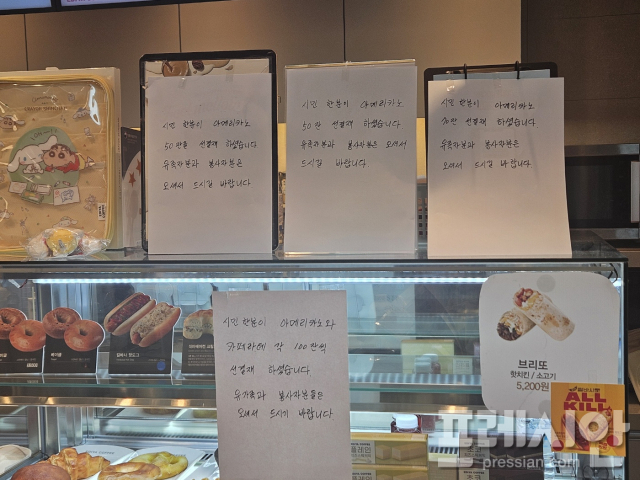 시민 한분이 아메리카노
50만원 선결재 하셨습니다
유족자분과 봉사자분은
오셔서 드시길 바랍니다.
시민 한분이 아메리카노
50만 선결재 하셨습니다
유족자분과 봉사자분은 오셔서
드시길 바랍니다.
시민 한분이 아메리카노
선결재 하셨습니다
유족자분과 봉사자분은
오셔서 드시길 바랍니다.
시민 한분이 아메리카노와
카페라떼 각 100만원
선결재 하셨습니다
유가족과 봉사자분들은
오셔서 드시기 바랍니다.
브리또
핫치킨 / 소고기
5,200원
ALL
KILL
프레시안
pressian.com